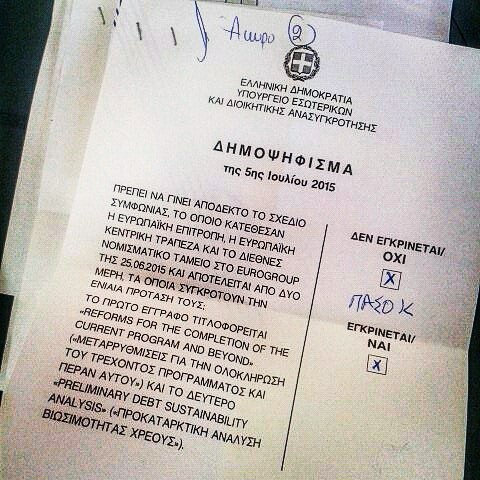 Άκυρο (2)
ΕΛΛΗΝΙΚΗ ΔΗΜΟΚΡΑΤΙΑ
ΥΠΟΥΡΓΕΙΟ ΕΣΩΤΕΡΙΚΩΝ
ΚΑΙ ΔΙΟΙΚΗΤΙΚΗΣ ΑΝΑΣΥΓΚΡΟΤΗΣΗΣ
ΔΗΜΟΨΗΦΙΣΜΑ
της 5ης Ιουλίου 2015
ΠΡΕΠΕΙ ΝΑ ΓΙΝΕΙ ΑΠΟΔΕΚΤΟ ΤΟ ΣΧΕΔΙΟ
ΣΥΜΦΩΝΙΑΣ, ΤΟ ΟΠΟΙΟ ΚΑΤΕΘΕΣΑΝ
Η ΕΥΡΩΠΑΪΚΗ ΕΠΙΤΡΟΠΗ, Η ΕΥΡΩΠΑΪΚΗ
ΚΕΝΤΡΙΚΗ ΤΡΑΠΕΖΑ ΚΑΙ ΤΟ ΔΙΕΘΝΕΣ
ΝΟΜΙΣΜΑΤΙΚΟ ΤΑΜΕΙΟ ΣΤΟ EUROGROUP
ΤΗΣ 25.06.2015 ΚΑΙ ΑΠΟΤΕΛΕΙΤΑΙ ΑΠΟ ΔΥΟ
ΜΕΡΗ, ΤΑ ΟΠΟΙΑ ΣΥΓΚΡΟΤΟΥΝ ΤΗΝ
ΕΝΙΑΙΑ ΠΡΟΤΑΣΗ ΤΟΥΣ:
ΤΟ ΠΡΩΤΟ ΕΓΓΡΑΦΟ ΤΙΤΛΟΦΟΡΕΙΤΑΙ
«REFORMS FOR THE COMPLETION OF THE
CURRENT PROGRAM AND BEYOND»
(«ΜΕΤΑΡΡΥΘΜΙΣΕΙΣ ΓΙΑ ΤΗΝ ΟΛΟΚΛΗΡΩΣΗ
ΤΟΥ ΤΡΕΧΟΝΤΟΣ ΠΡΟΓΡΑΜΜΑΤΟΣ ΚΑΙ
ΠΕΡΑΝ ΑΥΤΟΥ») ΚΑΙ ΤΟ ΔΕΥΤΕΡΟ
«PRELIMINARY DEBT SUSTAINABILITY
ANALYSIS» («ΠΡΟΚΑΤΑΡΚΤΙΚΗ ΑΝΑΛΥΣΗ
ΒΙΩΣΙΜΟΤΗΤΑΣ ΧΡΕΟΥΣ»).
ΔΕΝ ΕΓΚΡΙΝΕΤΑΙ/
ΟΧΙ
X
ΠΑΣΟΚ
ΕΓΚΡΙΝΕΤΑΙ/
ΝΑΙ
X